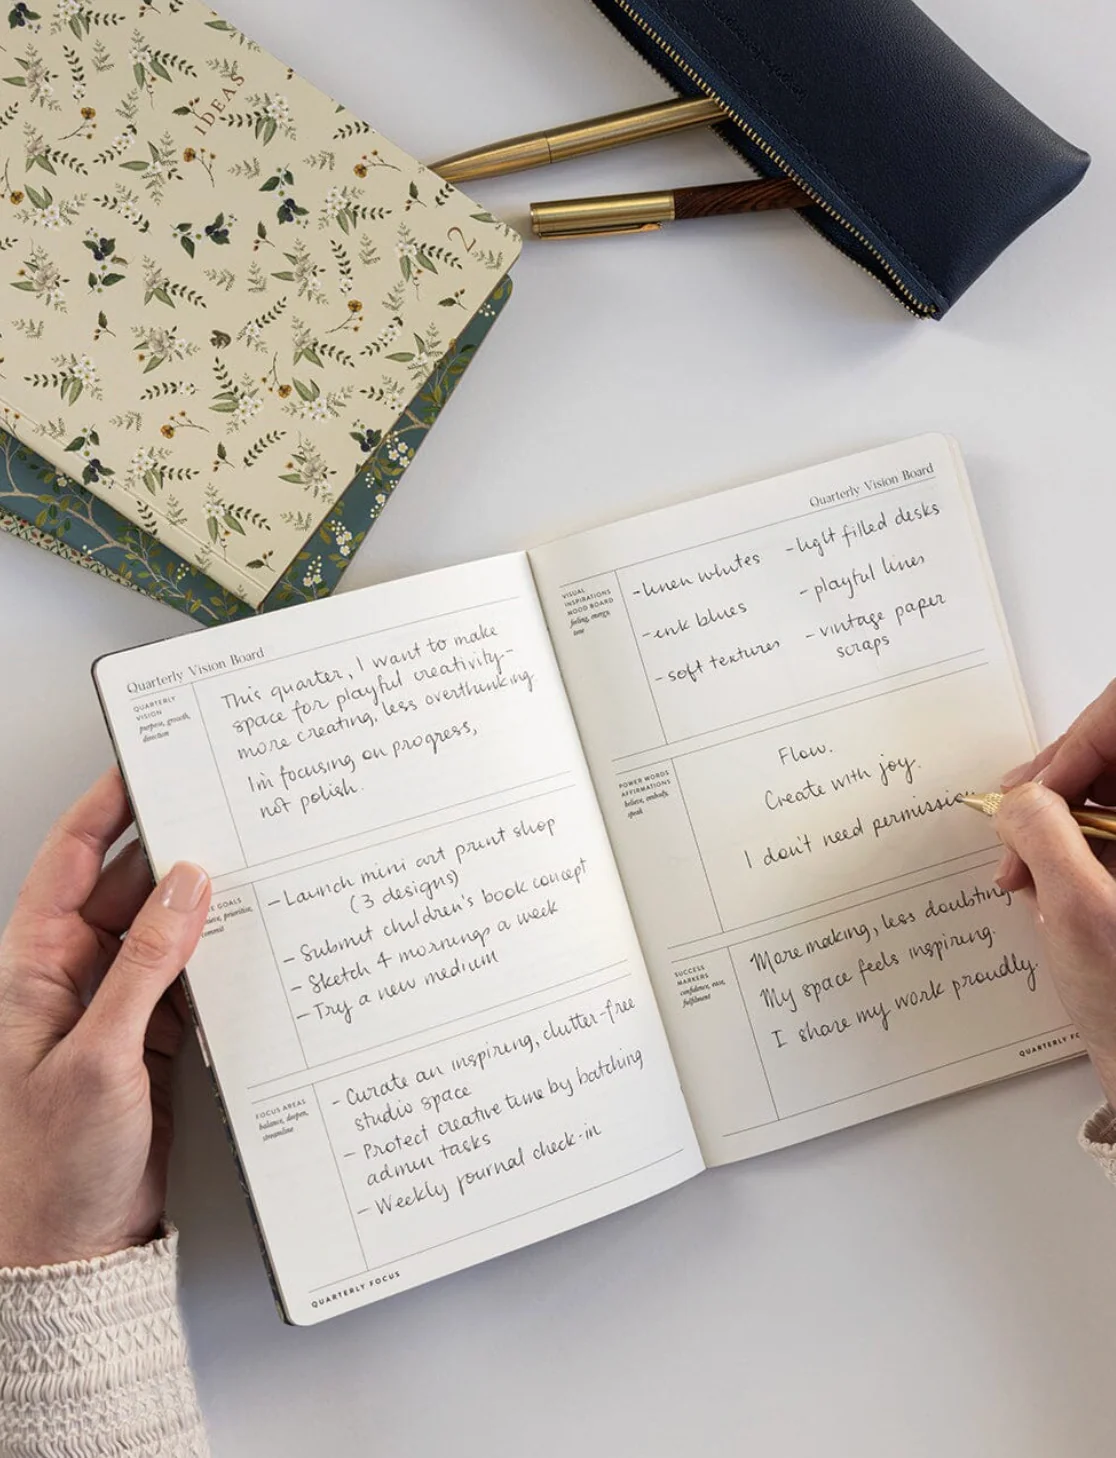 IDEAS
2
Quarterly Vision Board
QUARTERLY
VISION
purpose, growth,
direction
This quarter, I want to make
space for playful creativity-
more creating, less overthinking
I'm focusing on progress,
not polish.
GOALS
commit
- Launch mini art print shop
(3 designs)
- Submit children's book concept
- Sketch 4 mornings a week
- Try a new medium
FOCUS AREAS
balance, deepen,
streamline
- Curate an inspiring, clutter-free
studio space
- Protect creative time by batching
admin tasks
- Weekly journal check-in
QUARTERLY FOCUS
Quarterly Vision Board
VISUAL
INSPIRATIONS
MOOD BOARD
feeling, energy,
tone
- linen whites
- ink blues
- soft textures
- light filled desks
- playful lines
- vintage paper
scraps
POWER WORDS
AFFIRMATIONS
believe, embody,
speak
Flow.
Create with joy.
I don't need permission
SUCCESS
MARKERS
confidence, ease,
fulfilment
More making, less doubting
My space feels inspiring.
I share my work proudly.
QUARTERLY